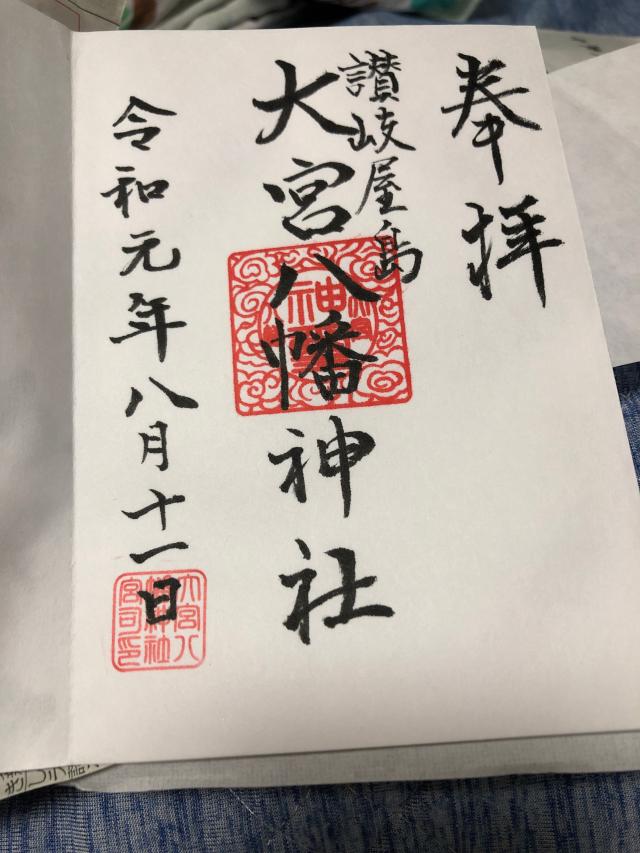 奉拝
讃岐屋島
大宮八幡神社
令和元年八月十一日
大宮八
幡神社
宮司印